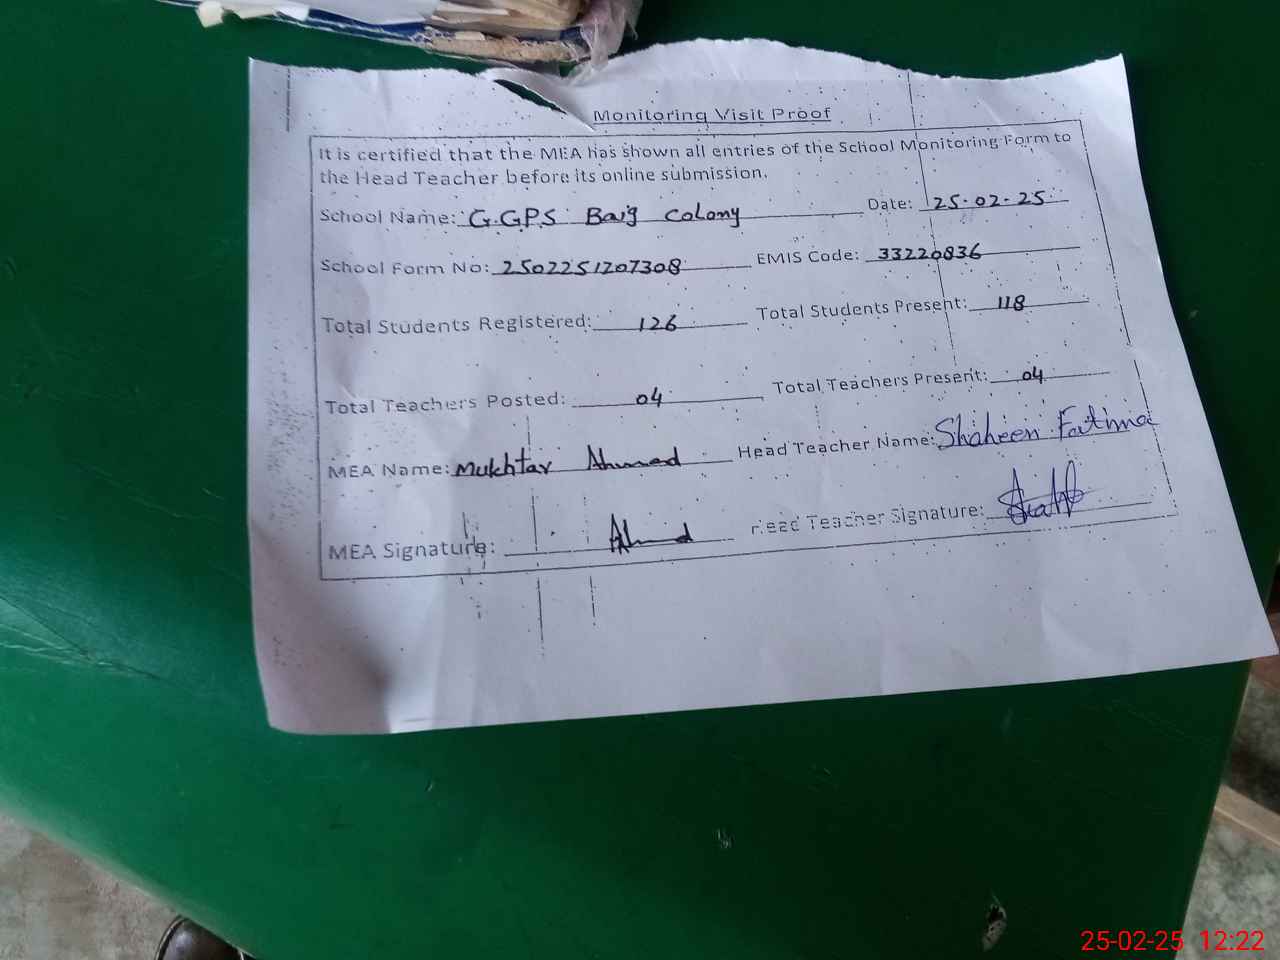 Monitoring Visit Proof
It is certified that the MEA has shown all entries of the School Monitoring Form to
the Head Teacher before its online submission.
School Name: G.GPS Baig Colony Date: 25-02-25
School Form No: 2502251207308 EMIS Code: 33220836
Total Students Registered: 126 Total Students Present: 118
Total Teachers Posted: 04 Total Teachers Present: 04
MEA Name: Mukhtar Ahmad Head Teacher Name: Shaheen Fatima
MEA Signature: Ahmad Head Teacher Signature:
25-02-25 12:22